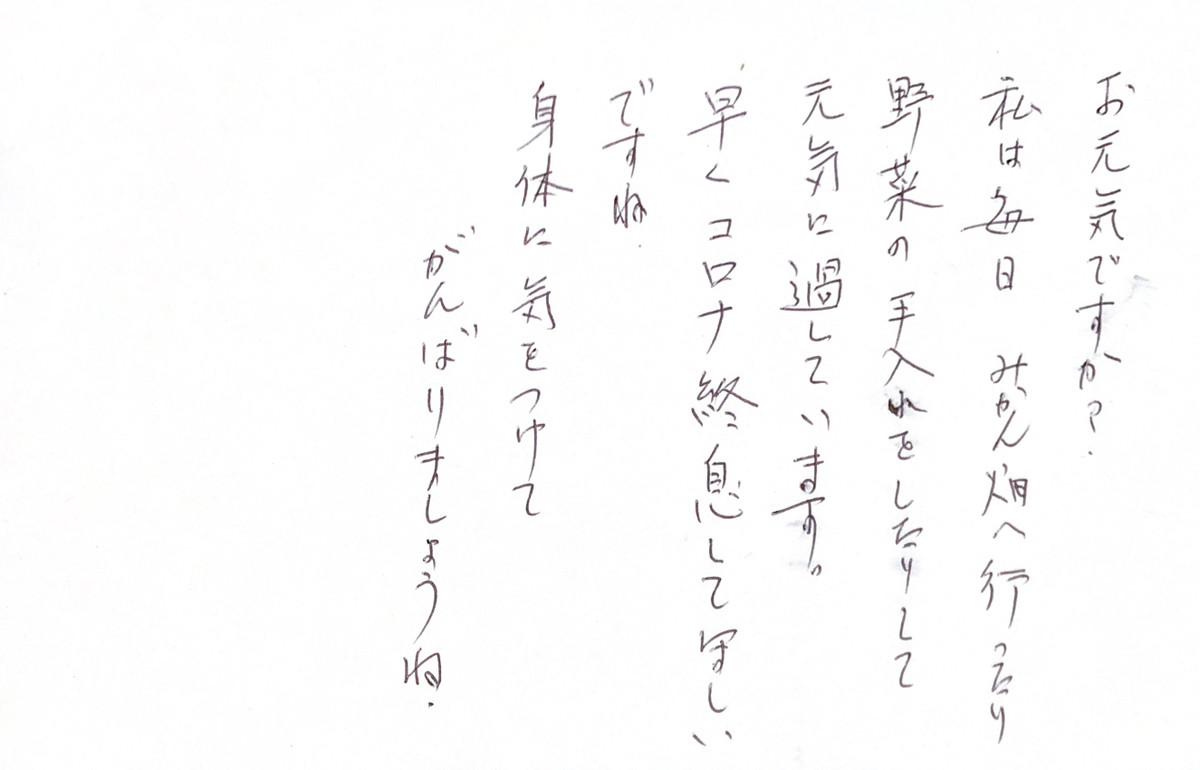 お元気ですか?
私は毎日 みかん畑へ行ったり
野菜の手入れをしたりして
元気に過しています。
早くコロナ終息して欲しい
ですね.
身体に気をつけて
がんばりましょうね.